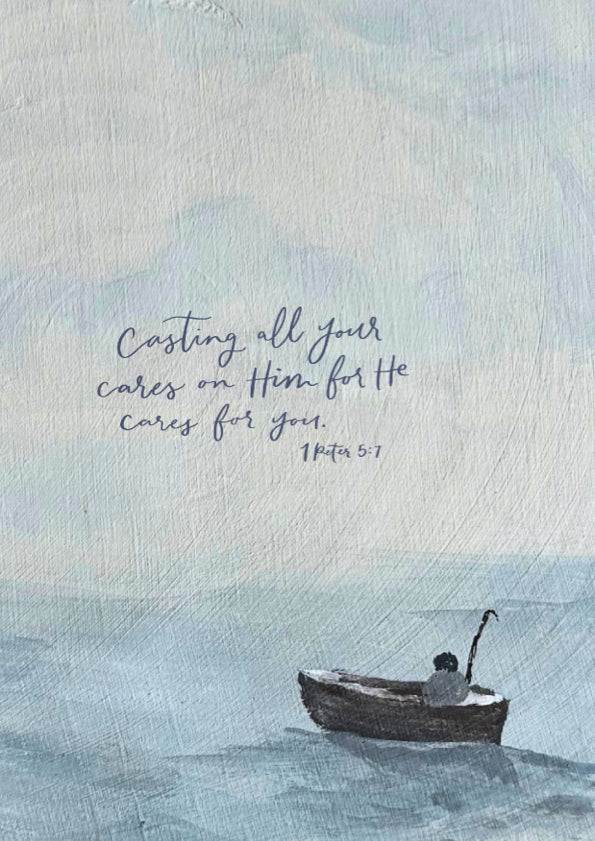 Casting all your
cares on Him for He
cares for you.
1 Peter 5:7